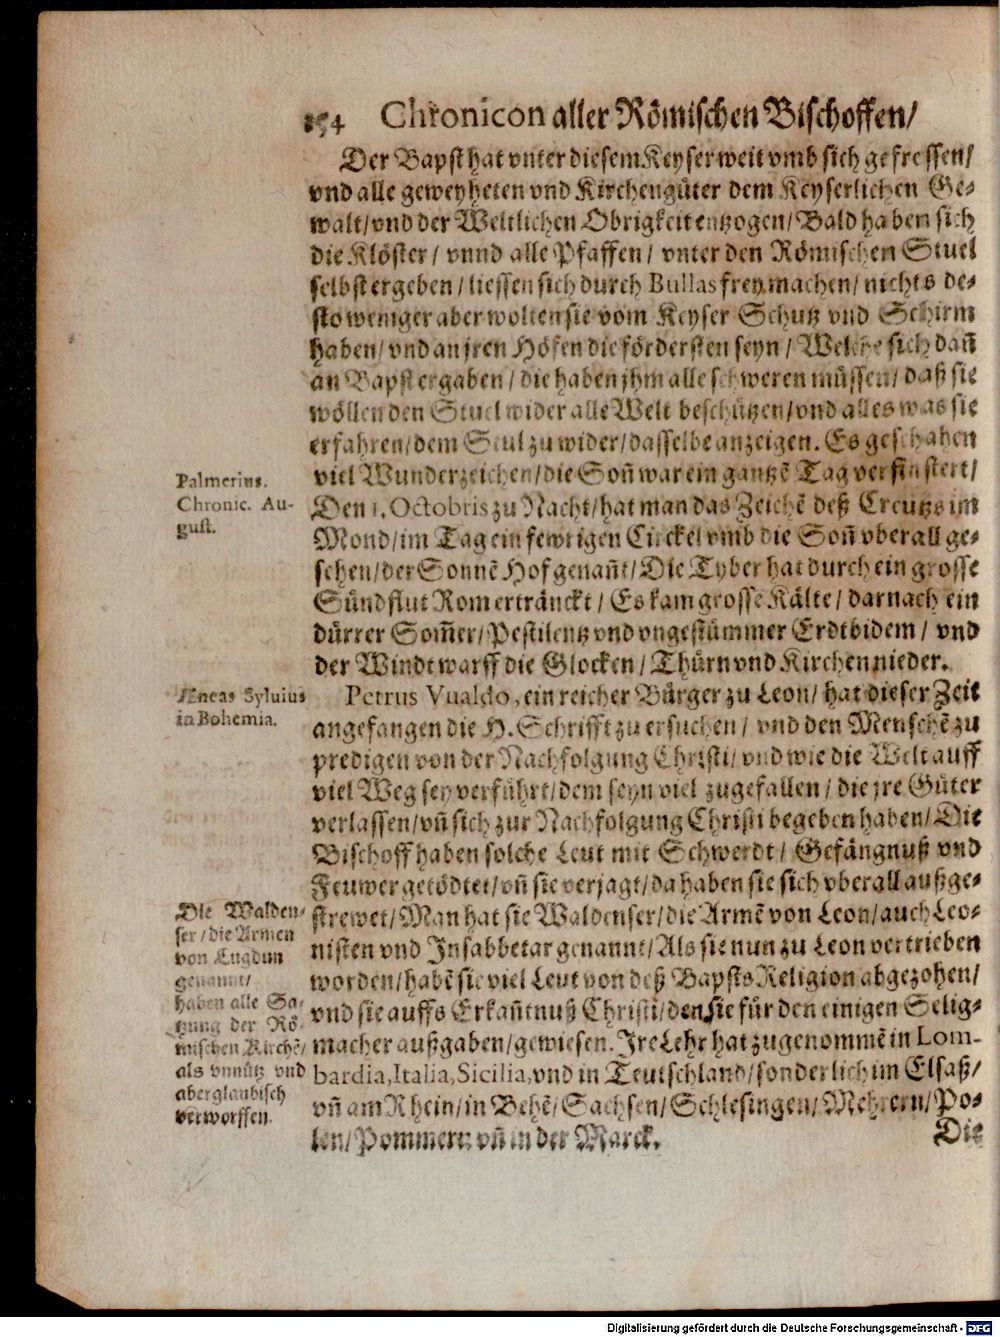 154 Chronicon aller Römischen Bischoffen/
Der Bapst hat vnter diesem Keyser weit vmb sich gefressen/
vnd alle geweyheten vnd Kirchengüter dem Keyserlichen Ge-
walt/vnd der Weltlichen Obrigkeit entzogen/Bald haben sich
die Klöster/ vnnd alle Pfaffen/ vnter den Römischen Stuel
selbst ergeben/liessen sich durch Bullas frey machen/nichts de-
sto weniger aber wolten sie vom Keyser Schutz vnd Schirm
haben/vnd an jren Höfen die fördersten seyn/ Welche sich dañ
an Bapst ergaben/die haben jhm alle schweren müssen/daß sie
wöllen den Stuel wider alle Welt beschützen/vnd alles was sie
erfahren/dem Stul zu wider/dasselbe anzeigen. Es geschahen
viel Wunderzeichen/die Soñ war ein gantzẽ Tag verfinstert/
Den 1. Octobris zu Nacht/hat man das Zeichẽ deß Creutzs im
Mond/im Tag ein fewrigen Circkel vmb die Soñ vberall ge-
sehen/der Sonnẽ Hof genañt/Die Tyber hat durch ein grosse
Sündflut Rom ertränckt/ Es kam grosse Kälte/ darnach ein
dürrer Som̃er/Pestilentz vnd vngestümmer Erdtbidem/ vnd
der Windt warff die Glocken/Thürn vnd Kirchen nieder.
Petrus Vualdo, ein reicher Bürger zu Leon/ hat dieser Zeit
angefangen die H. Schrifft zu ersuchen/ vnd den Menschẽ zu
predigen von der Nachfolgung Christi/vnd wie die Welt auff
viel Weg sey verführt/dem seyn viel zugefallen/die jre Güter
verlassen/vñ sich zur Nachfolgung Christi begeben haben/Die
Bischoff haben solche Leut mit Schwerdt/ Gefängnuß vnd
Feuwer getödtet/vñ sie verjagt/da haben sie sich vberall außge-
strewet/Man hat sie Waldenser/die Armẽ von Leon/auch Leo-
nisten vnd Insabbetar genannt/Als sie nun zu Leon vertrieben
worden/habẽ sie viel Leut von deß Bapsts Religion abgezohen/
vnd sie auffs Erkañtnuß Christi/den sie für den einigen Selig-
macher außgaben/gewiesen. Ire Lehr hat zugenommẽ in Lom-
bardia, Italia, Sicilia, vnd in Teutschland/sonderlich im Elsaß/
vñ am Rhein/in Behẽ/Sachsen/Schlesingen/Mehrern/Po-
len/Pommern vñ in der Marck.
Die
Palmerius.
Chronic. Au-
gust.
Æneas Syluius
in Bohemia.
Die Walden-
ser/die Armen
von Lugdun
genannt/
haben alle Sa-
tzung der Rö-
mischen Kirchẽ/
als vnnütz vnd
aberglaubisch
verworffen.
Digitalisierung gefördert durch die Deutsche Forschungsgemeinschaft - DFG